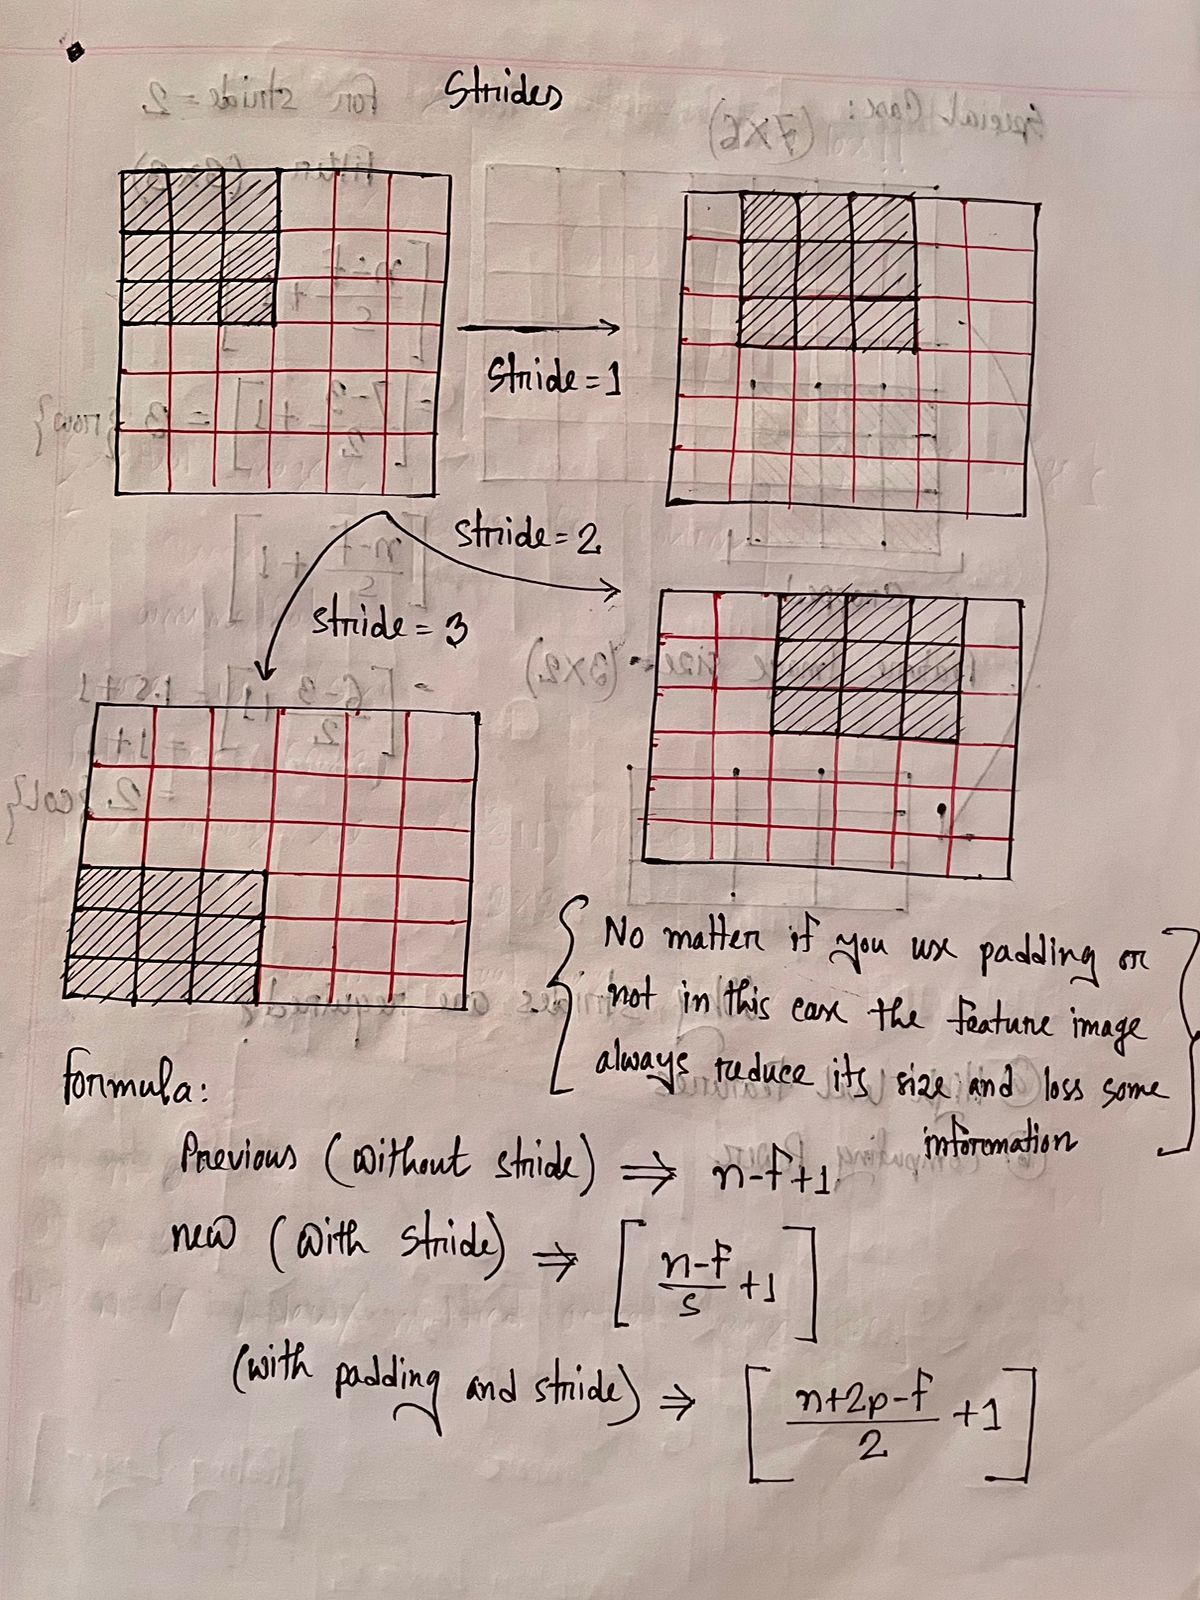 Strides
Stride = 1
Stride = 2
Stride = 3
{ No matter if you use padding or
not in this case the feature image
always reduce its size and loss some
information }
formula:
Previous (without stride) ⇒ n-f+1
new (with stride) ⇒ [ (n-f)/s +1 ]
(with padding and stride) ⇒ [ (n+2p-f)/2 +1 ]